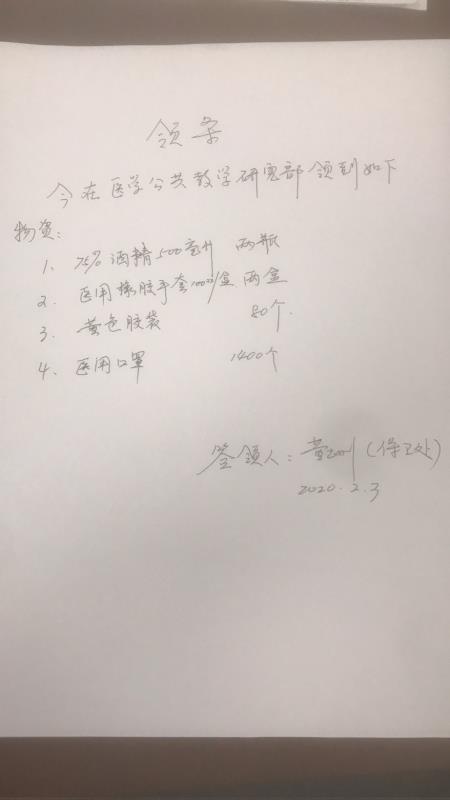 领条
今在医学公共教学研究部领到如下
物资:
1、75%酒精500毫升 两瓶
2、医用橡胶手套100只/盒 两盒
3、黄色胶袋 80个.
4、医用口罩 1400个
签领人: 黄 (保卫处)
2020.2.3